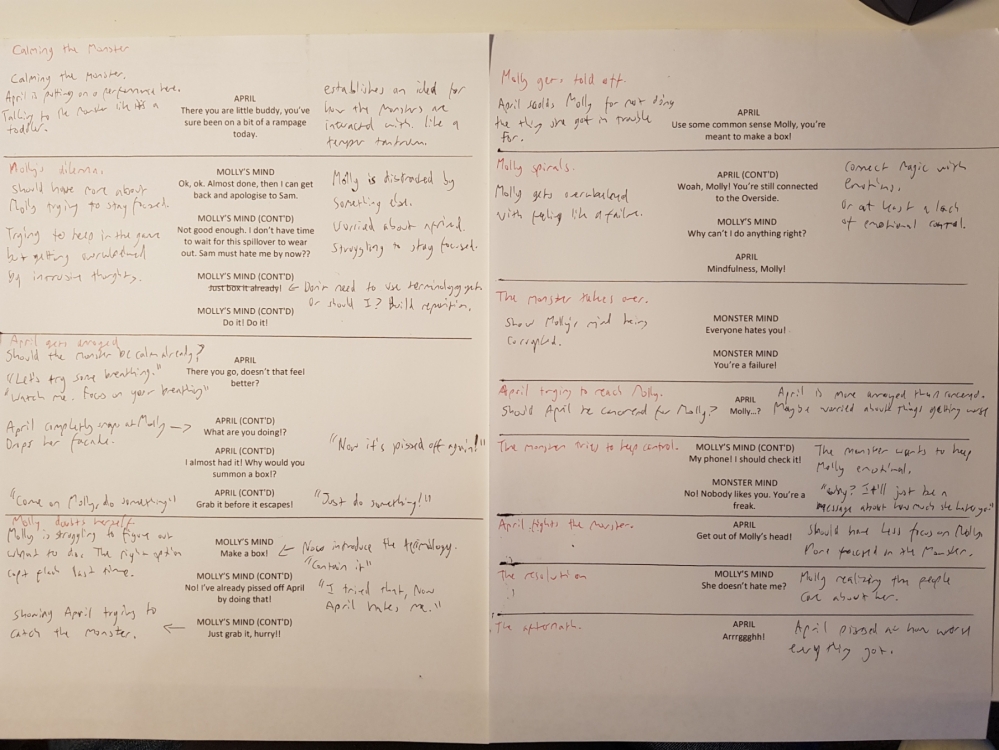 Calming the Monster
Calming the Monster.
April is putting on a performance here.
Talking to the Monster like it's a
toddler.
APRIL
There you are little buddy, you've
sure been on a bit of a rampage
today.
establishes an idea for
how the monsters are
interacted with. like a
temper tantrum.
Molly's dilemma.
Should have more about
Molly trying to stay focused.
Trying to keep in the game
but getting overwhelmed
by intrusive thoughts.
MOLLY'S MIND
Ok, ok. Almost done, then I can get
back and apologise to Sam.
MOLLY'S MIND (CONT'D)
Not good enough. I don't have time
to wait for this spillover to wear
out. Sam must hate me by now??
MOLLY'S MIND (CONT'D)
Just box it already!
MOLLY'S MIND (CONT'D)
Do it! Do it!
Molly is distracted by
something else.
Worried about a friend.
Struggling to stay focused.
Don't need to use terminology yet
Or should I? Build repetition.
April gets annoyed
Should the monster be calm already?
"Let's try some breathing."
"Watch me. Focus on your breathing"
APRIL
There you go, doesn't that feel
better?
April completely snaps at Molly
Drops her facade.
APRIL (CONT'D)
What are you doing!?
APRIL (CONT'D)
I almost had it! Why would you
summon a box!?
"Now it's pissed off again!"
"Come on Molly, do something"
APRIL (CONT'D)
Grab it before it escapes!
"Just do something!!"
Molly doubts herself
Molly is struggling to figure out
what to do. The right option
last time.
MOLLY'S MIND
Make a box!
Now introduce the terminology.
"Contain it"
MOLLY'S MIND (CONT'D)
No! I've already pissed off April
by doing that!
"I tried that, Now
April hates me."
Showing April trying to
catch the Monster.
MOLLY'S MIND (CONT'D)
Just grab it, hurry!!
Molly gets told off.
April scolds Molly for not doing
the thing she got in trouble
for.
APRIL
Use some common sense Molly, you're
meant to make a box!
Molly spirals.
Molly gets overwhelmed
with feeling like a failure.
APRIL (CONT'D)
Woah, Molly! You're still connected
to the Overside.
MOLLY'S MIND
Why can't I do anything right?
APRIL
Mindfulness, Molly!
Connect magic with
emotions.
Or at least a lack
of emotional control.
The Monster takes over.
Show Molly's mind being
corrupted.
MONSTER MIND
Everyone hates you!
MONSTER MIND
You're a failure!
April trying to reach Molly.
Should April be concerned for Molly?
APRIL
Molly...?
April is more annoyed than concerned.
Maybe worried about things getting worse
The monster tries to keep control.
MOLLY'S MIND (CONT'D)
My phone! I should check it!
MONSTER MIND
No! Nobody likes you. You're a
freak.
The monster wants to keep
Molly emotional.
"Why? It'll just be a
message about how much she hates you"
April fights the Monster.
APRIL
Get out of Molly's head!
Should have less focus on Molly
More focused on the Monster.
The resolution
MOLLY'S MIND
She doesn't hate me?
Molly realizing that people
care about her.
The aftermath.
APRIL
Arrrggghh!
April pissed at how worse
everything got.